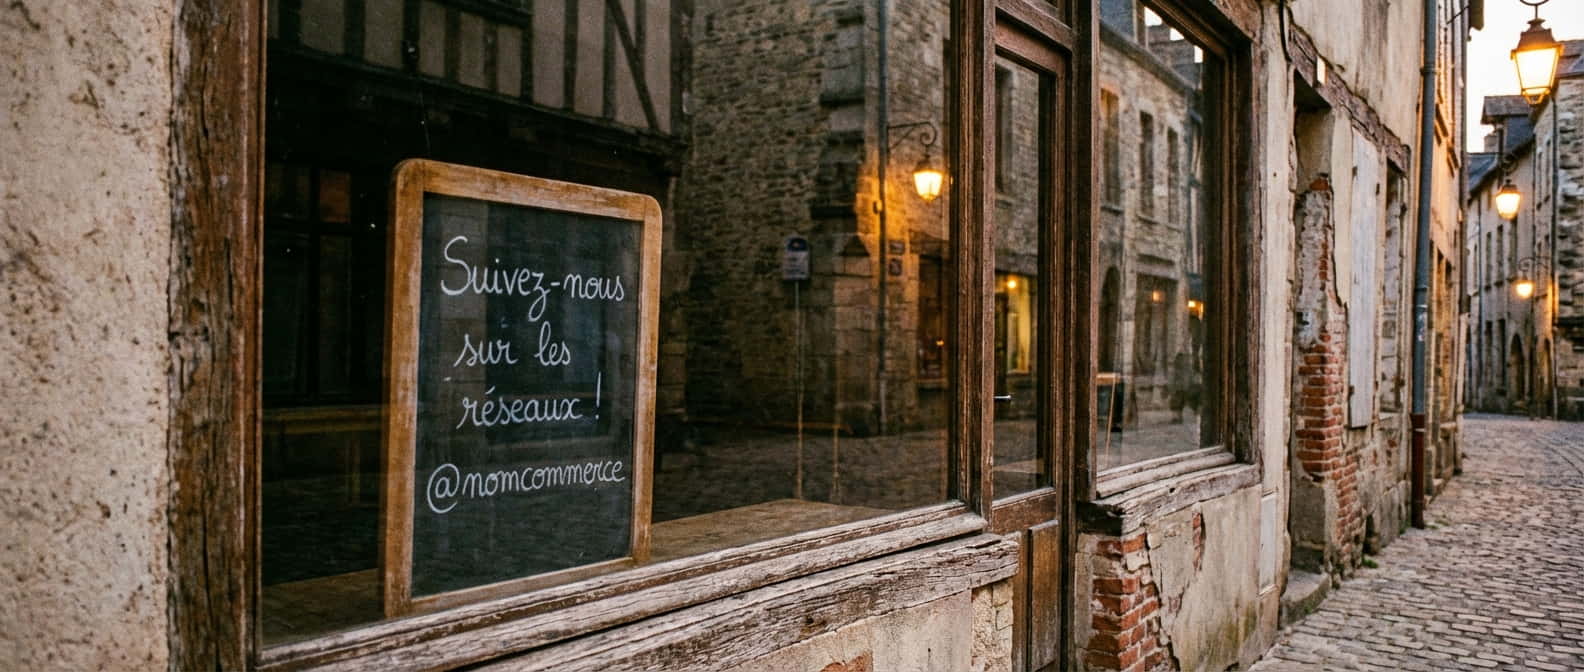 Suivez-nous
sur les
réseaux !
@nomcommerce